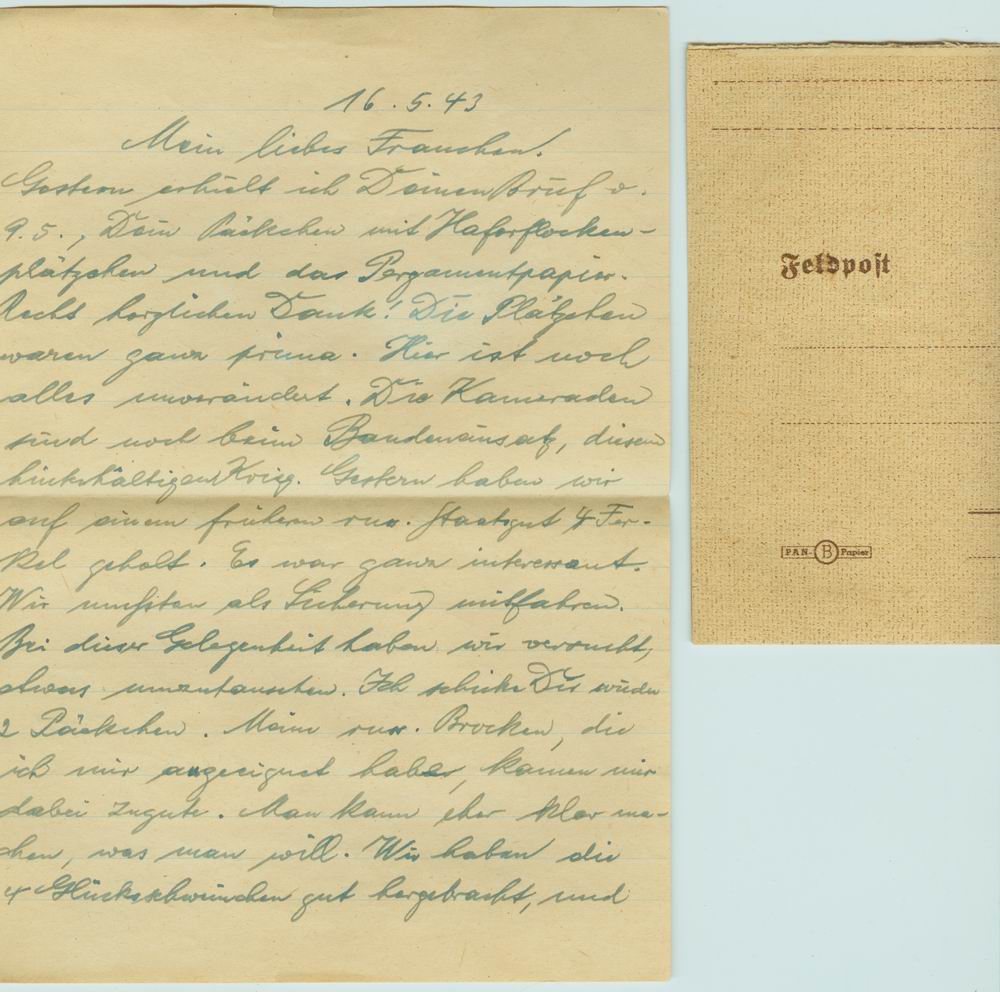 16.5.43
Mein liebes Frauchen!
Gestern erhielt ich Deinen Brief v.
9.5., Dein Päckchen mit Haferflocken-
plätzchen und das Pergamentpapier.
Recht herzlichen Dank! Die Plätzchen
waren ganz prima. Hier ist noch
alles unverändert. Die Kameraden
sind noch beim Bandeneinsatz, diesem
hinterhältigen Krieg. Gestern haben wir
auf einem frühern russ. Staatsgut 4 Fer-
kel geholt. Es war ganz interessant.
Wir mußten als Sicherung mitfahren.
Bei dieser Gelegenheit haben wir versucht,
etwas umzutauschen. Ich schicke Dir wieder
2 Päckchen. Meine russ. Brocken, die
ich mir angeeignet habe, kamen mir
dabei zugute. Man kann eher klar ma-
chen, was man will. Wir haben die
4 Glücksschweinchen gut hergebracht, und
Feldpost
PAN- B Papier